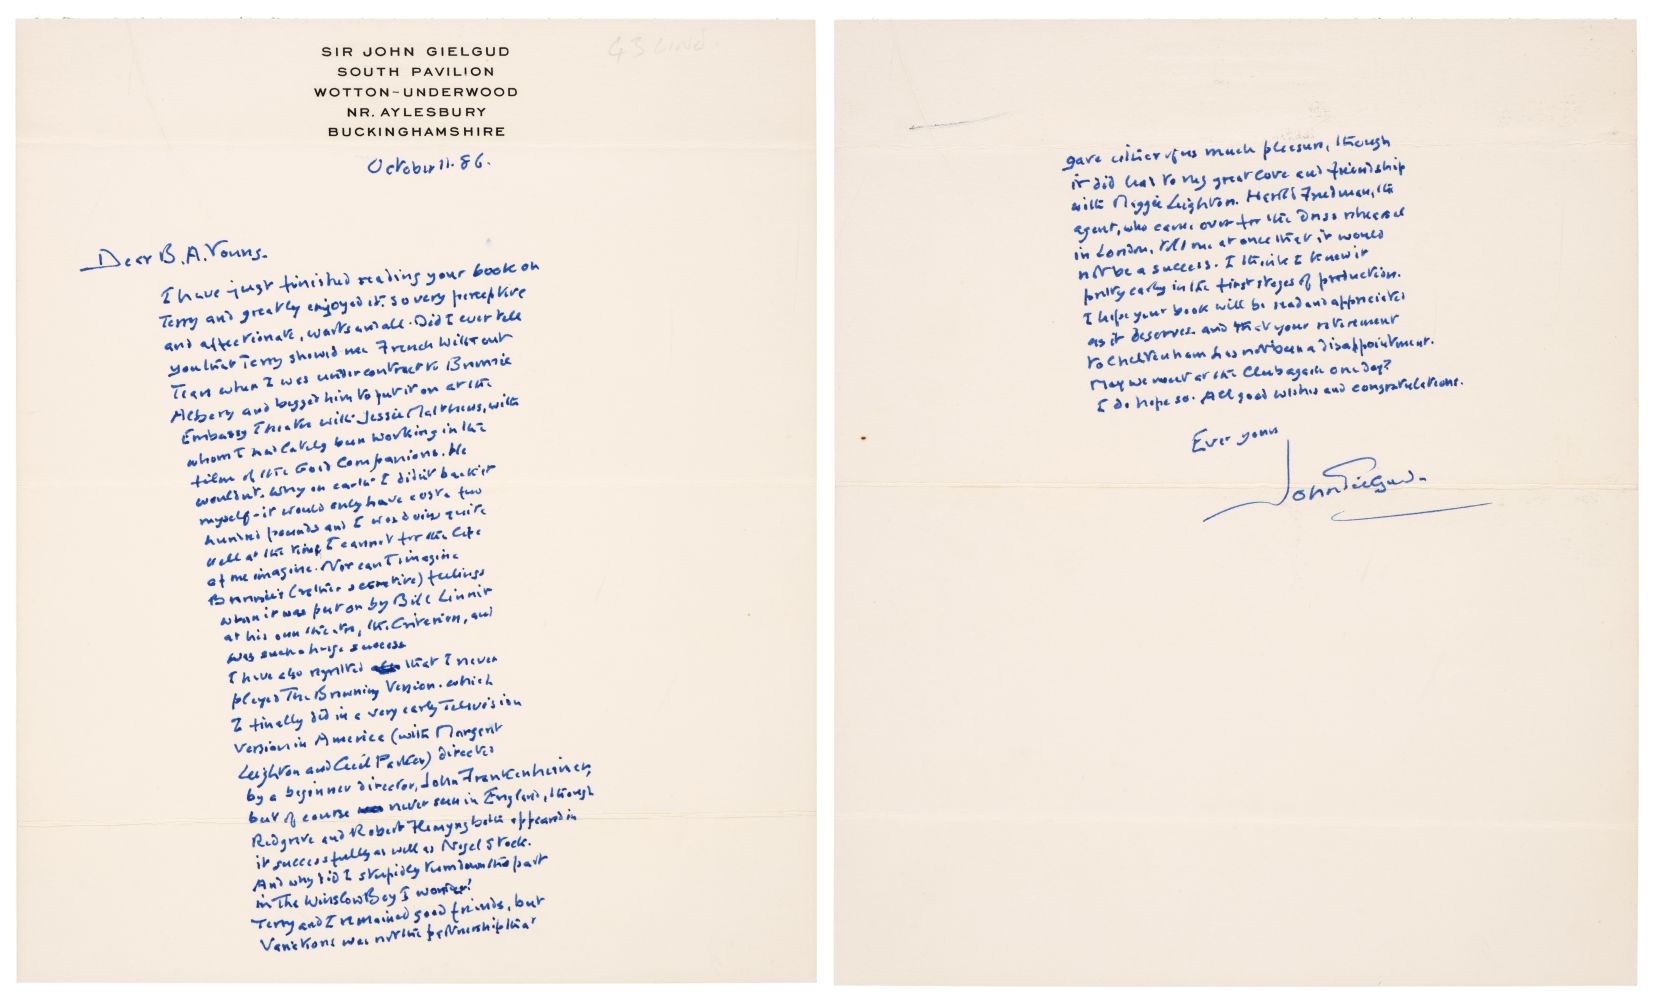 SIR JOHN GIELGUD
SOUTH PAVILION
WOTTON-UNDERWOOD
NR. AYLESBURY
BUCKINGHAMSHIRE
October 11. 86.
Dear B. A. Young.
I have just finished reading your book on
Terry and greatly enjoyed it. So very perceptive
and affectionate, warts and all. Did I ever tell
you that Terry showed me French Without
Tears when I was under contract to Bronnie
Albery and begged him to put it on at the
Embassy Theatre with Jessie Matthews, with
whom I had lately been working in the
film of the Good Companions. He
wouldn't. Why on earth I didn't back it
myself - it would only have cost a few
hundred pounds and I was doing quite
well at the time, I cannot for the life
of me imagine. Nor can I imagine
Bronnie's (rather secretive) feelings
when it was put on by Bill Linnit
at his own theatre, the Criterion, and
was such a huge success
I have also regretted that I never
played The Browning Version. which
I finally did in a very early Television
version in America (with Margaret
Leighton and Cecil Parker) directed
by a beginner director, John Frankenheimer,
but of course never seen in England, though
Redgrave and Robert Flemyng both appeared in
it successfully as well as Nigel Stock.
And why did I stupidly turn down the part
in The Winslow Boy I wonder!
Terry and I remained good friends, but
Variations was not the partnership that
gave either of us much pleasure, though
it did lead to my great love and friendship
with Maggie Leighton. Harold Freedman, the
agent, who came over for the dress rehearsal
in London, told me at once that it would
not be a success. I think I knew it
pretty early in the first stages of production.
I hope your book will be read and appreciated
as it deserves. and that your retirement
to Cheltenham has not been a disappointment.
May we meet at the Club again one day?
I do hope so. All good wishes and congratulations.
Ever yours
John Gielgud.